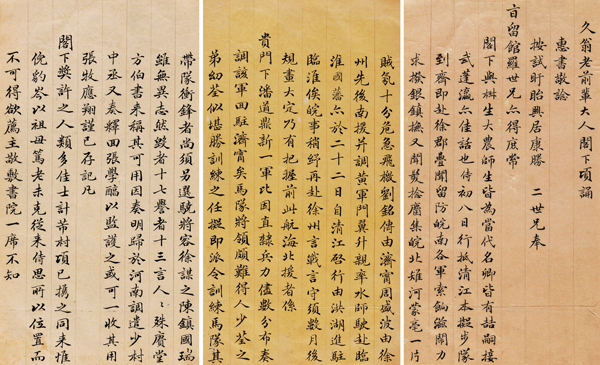 久翁老前輩大人閣下頃誦
惠書敬諗
按試盱眙興居康勝 二世兄奉
旨留館羅世兄亦得庶常
閣下與樾生大農師生皆為當代名卿皆有喆嗣接
武蓬瀛亦佳話也侍初八日行抵清江本擬步隊
到齊赴徐郡壘聞留防皖南各軍索餉鹽鬧力
求撥銀鎮撫又聞髮捻麕集皖北雉河蒙亳一片
賊氛十分危急飛檄劉銘傳由濟甯周盛波由徐
州先後南援并調黃軍門翼升親率水師駛赴臨
淮國藩亦於二十二日自清江啓行由洪湖進駐
臨淮俟皖事稍紓再赴徐州言戰言守須數月後
規畫大定乃有把握前此航海北援者係
貴門下潘道鼎新一軍比因直隸兵力僅敷分布奏
調該軍回駐濟甯矣馬隊將領頗難得人少荃之
弟幼荃似堪勝訓練之任擬即派令訓練馬隊其
帶隊衝鋒者尚須另選驍將容徐謀之陳鎮國瑞
雖無異志然毀者十七譽者十三言人人殊賡堂
方伯書來稱其可用因奏明歸於河南調遣少村
中丞又奏釋回張學醅以監護之或可一收其用
張牧應翔謹已存記凡
閣下獎許之人類多佳士計蒂村項已攜之同來惟
俛豹岑以祖母篤老未克從來侍思所以位置而
不可得欲薦主敬敷書院一席不知